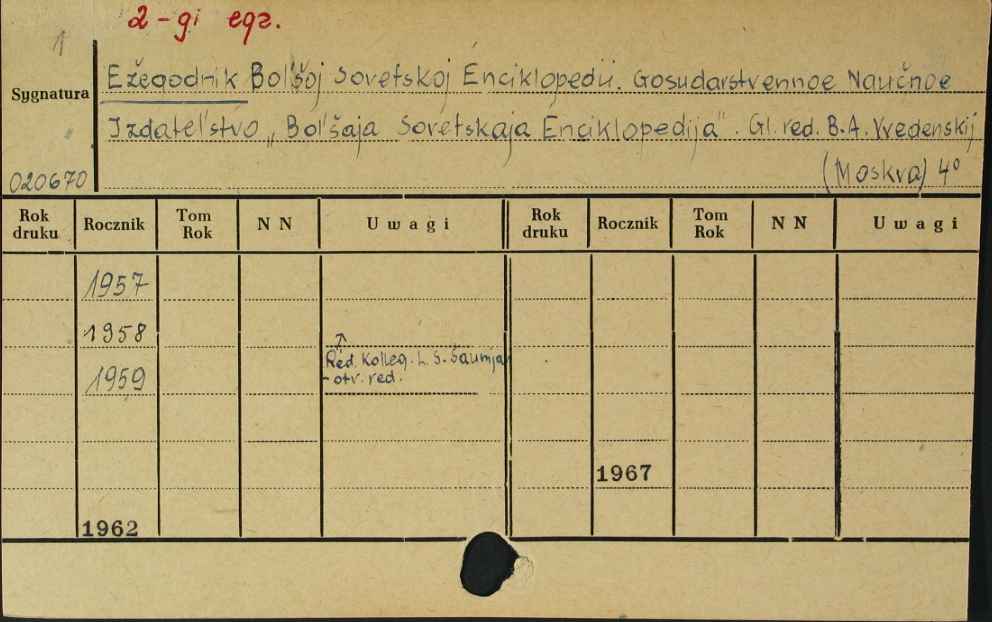 2-gi egz.
1
Sygnatura
Ežegodnik Bol'šoj Sovetskoj Enciklopedii. Gosudarstvennoe Naučnoe
Izdatel'stvo „Bol'šaja Sovetskaja Enciklopedija". Gl. red. B.A. Vvedenskij
020670
(Moskva) 4°
Rok druku Rocznik Tom Rok N N Uwagi Rok druku Rocznik Tom Rok N N Uwagi
1957
1958
↑
Red. Kolleg. L. S. Šaumja
1959
- otv. red.
1967
1962